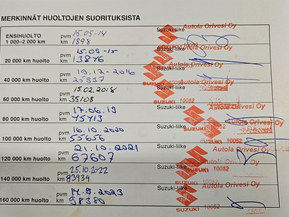 MERKINNÄT HUOLTOJEN SUORITUKSISTA
ENSIHUOLTO pvm 15.05-14 Suzuki-liike
1 000–2 000 km km 1898
pvm 15.05-15 Suzuki-liike
20 000 km huolto km 13876
pvm 10.12-2016 Suzuki-liike
40 000 km huolto km
pvm 15.02.2018 Suzuki-liike
60 000 km huolto km 35108 SUZUKI
pvm 17.06.19 Suzuki-liike Autola Orivesi Oy
80 000 km huolto km 45413 SUZUKI 10082
pvm 16.10.2020 Suzuki-liike
100 000 km huolto km 55656 SUZUKI
pvm 21.10.2021 Suzuki-liike Autola Orivesi Oy
120 000 km huolto km 67607 SUZUKI 10082
pvm 25.10.2022 Suzuki-liike Autola Orivesi Oy
140 000 km huolto km 83934 SUZUKI 10082
pvm Suzuki-liike Autola Orivesi Oy
160 000 km huolto km 98380 SUZUKI 10082